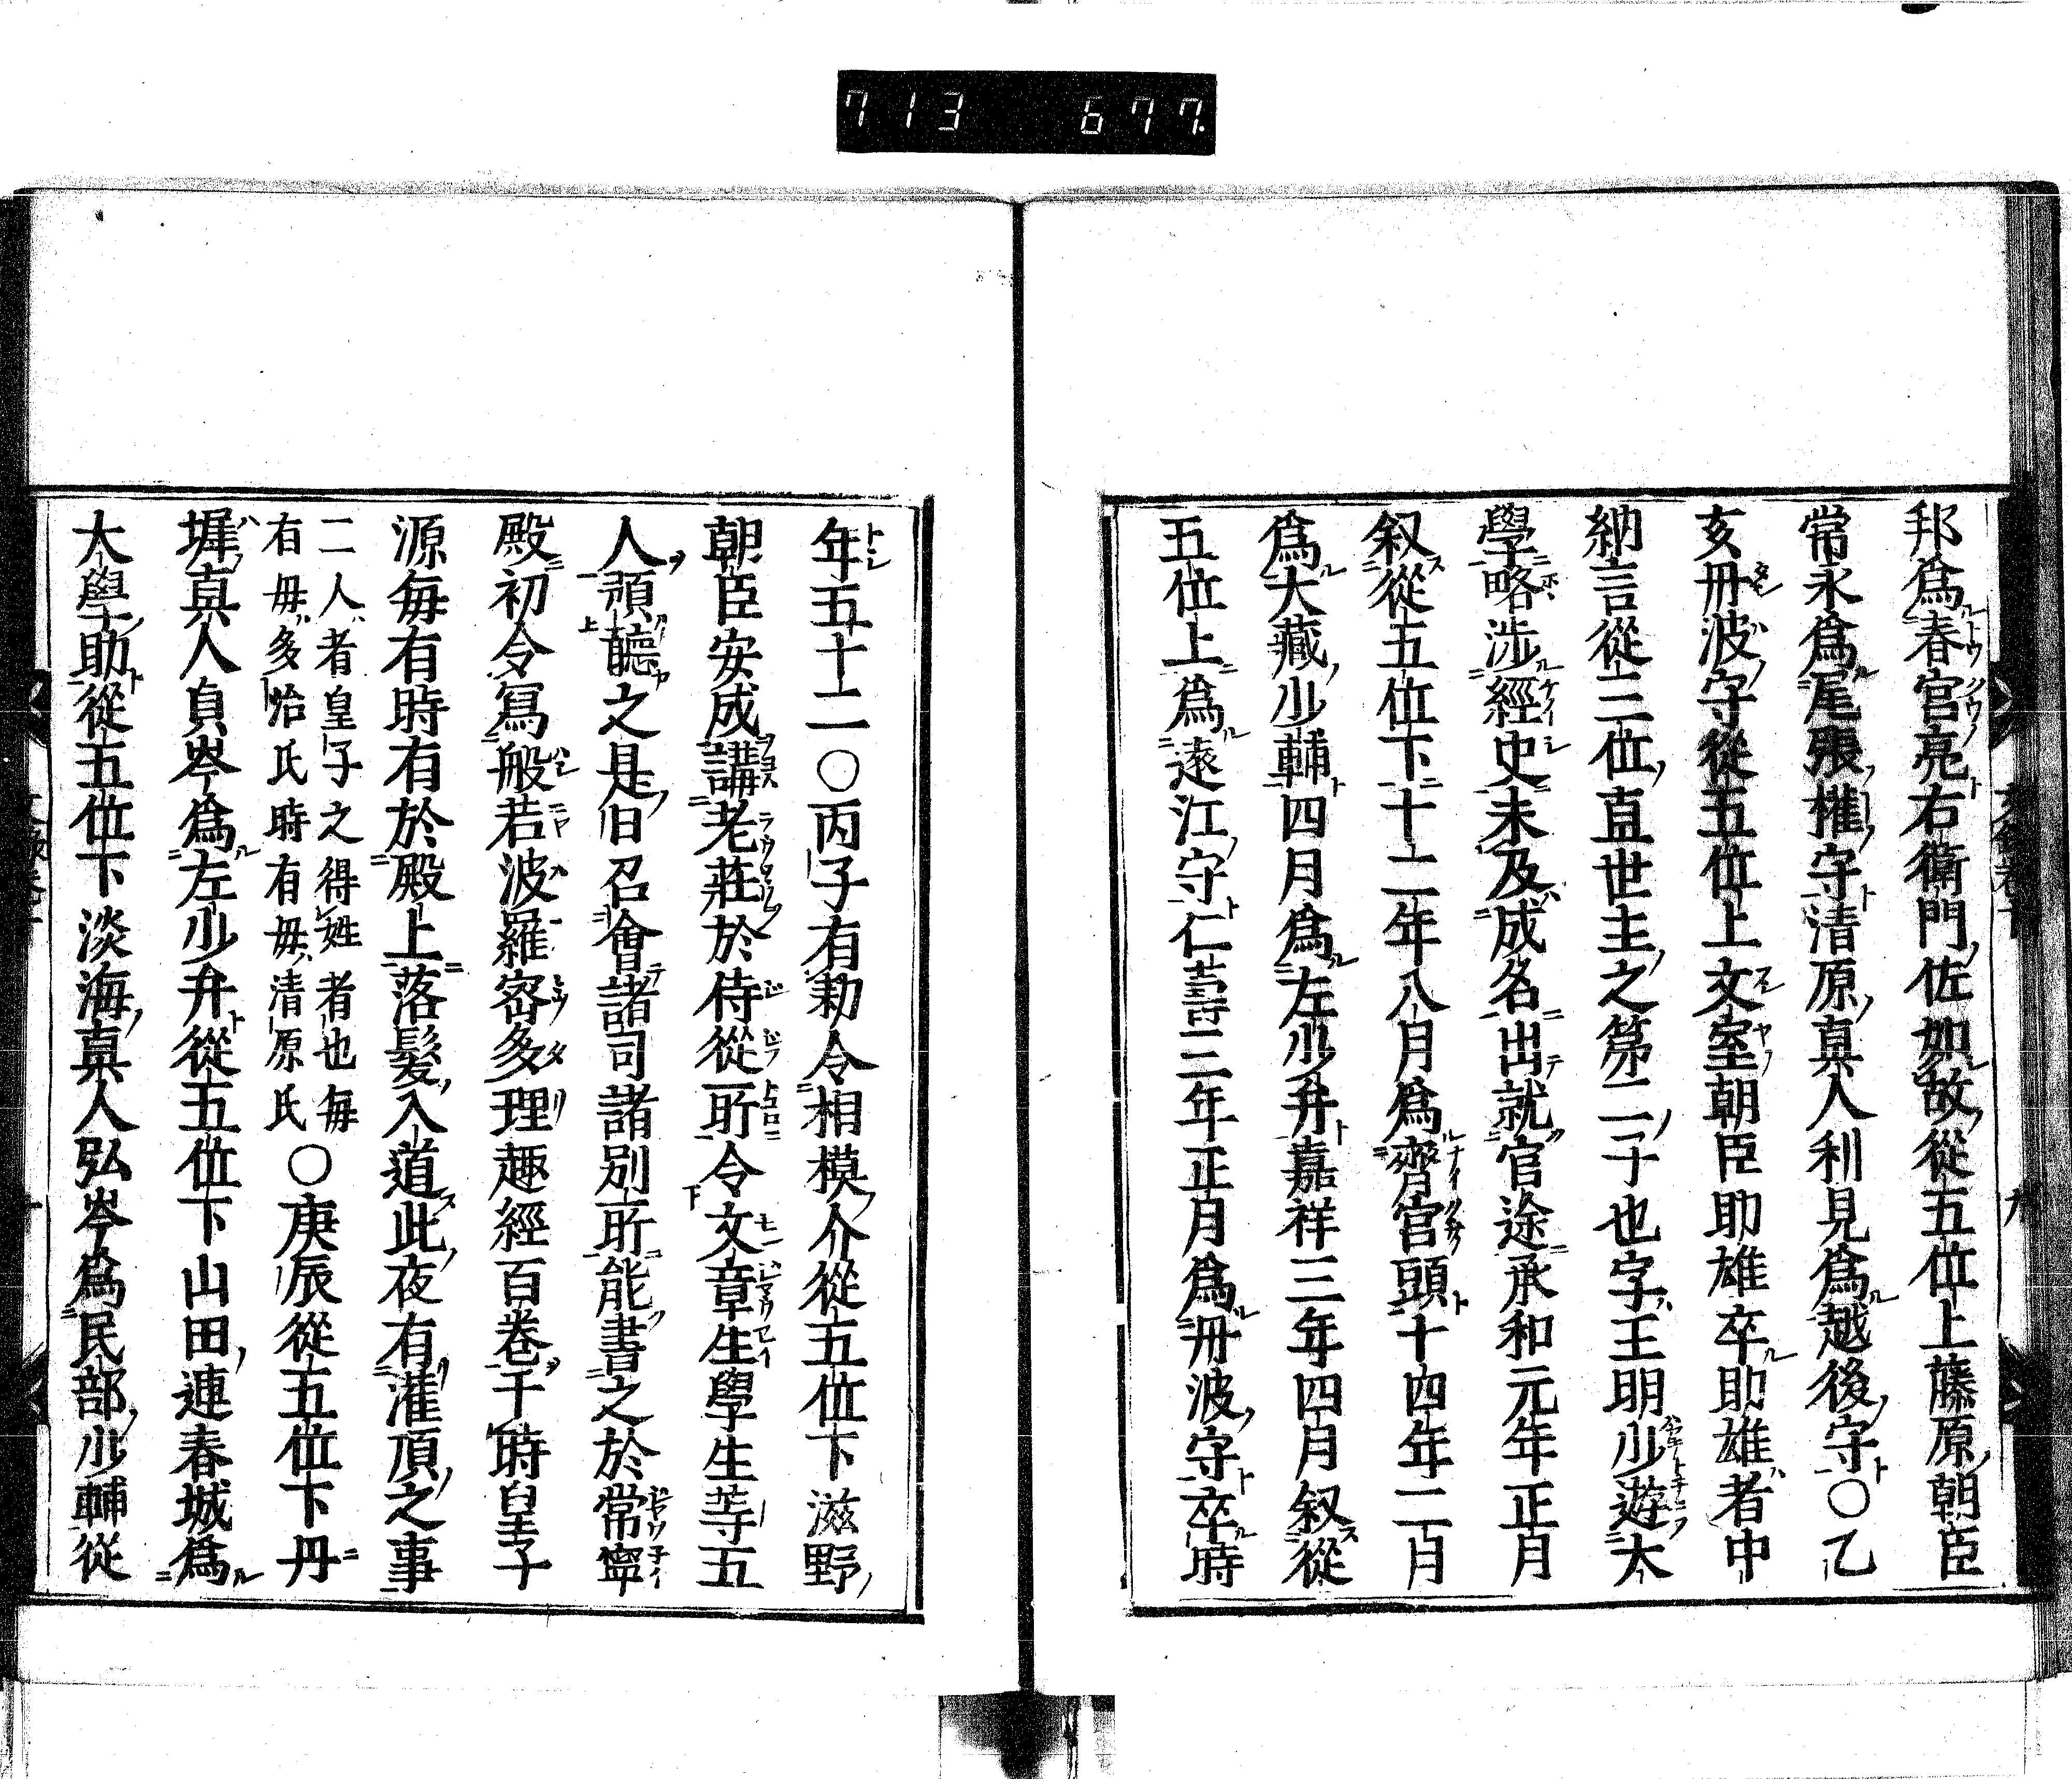 713 677.
邦爲春宮亮右衛門佐如故從五位上藤原朝臣
常永爲尾張權守清原真人利見爲越後守〇乙
亥丹波守從五位上文室朝臣助雄卒助雄者中
納言從三位直世王之第二子也字王明少遊大
學略涉經史未及成名出就官途承和元年正月
叙從五位下十二年八月爲齊宮頭十四年二月
爲大藏少輔四月爲左少弁嘉祥三年四月叙從
五位上爲遠江守仁壽三年正月爲丹波守卒時
年五十二〇丙子有勅令相模介從五位下滋野
朝臣安成講老莊於侍從所令文章生學生等五
人預聽之是日召會諸司諸別所能書之於常寧
殿初令寫般若波羅密多理趣經百卷于時皇子
源每有時有於殿上落髮入道此夜有灌頂之事
二人者皇子之得姓者也每
有毋多治氏時有毋清原氏
〇庚辰從五位下丹
墀真人貞岑爲左少弁從五位下山田連春城爲
大學助從五位下淡海真人弘岑爲民部少輔從